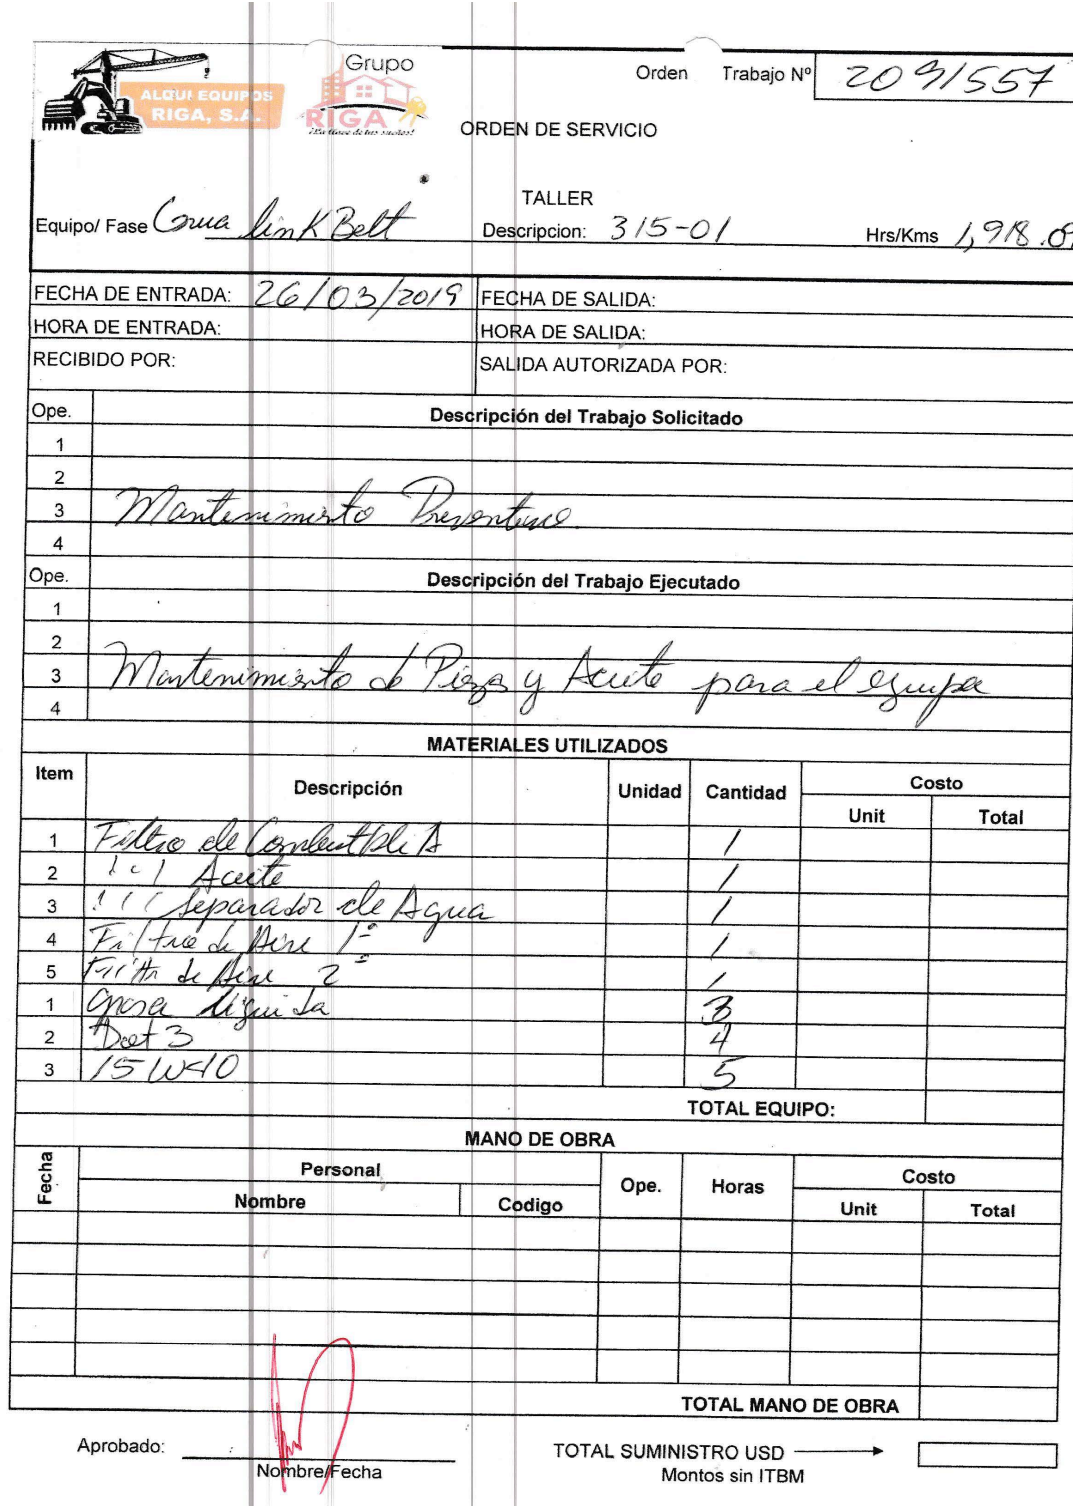 ALQUI EQUIPOS
RIGA, S.A.
Grupo
RIGA
¡La llave de tus sueños!
Orden Trabajo Nº 2091557
ORDEN DE SERVICIO
TALLER
Equipo/ Fase Grua link Belt Descripcion: 315-01 Hrs/Kms 1,918.09
FECHA DE ENTRADA: 26/03/2019 FECHA DE SALIDA:
HORA DE ENTRADA: HORA DE SALIDA:
RECIBIDO POR: SALIDA AUTORIZADA POR:
Ope. Descripción del Trabajo Solicitado
1
2
3 Mantenimiento Preventivo
4
Ope. Descripción del Trabajo Ejecutado
1
2
3 Mantenimiento de Pieza y Aceite para el equipo
4
MATERIALES UTILIZADOS
Item Descripción Unidad Cantidad Costo
Unit Total
1 Filtro de Combustible A 1
2 " " Aceite 1
3 " " Separador de Agua 1
4 Filtro de Aire 1º 1
5 Filtro de Aire 2º 1
1 Grasa liquida 3
2 Dot 3 4
3 15W40 5
TOTAL EQUIPO:
MANO DE OBRA
Fecha Personal Ope. Horas Costo
Nombre Codigo Unit Total
TOTAL MANO DE OBRA
Aprobado:
Nombre/Fecha
TOTAL SUMINISTRO USD
Montos sin ITBM